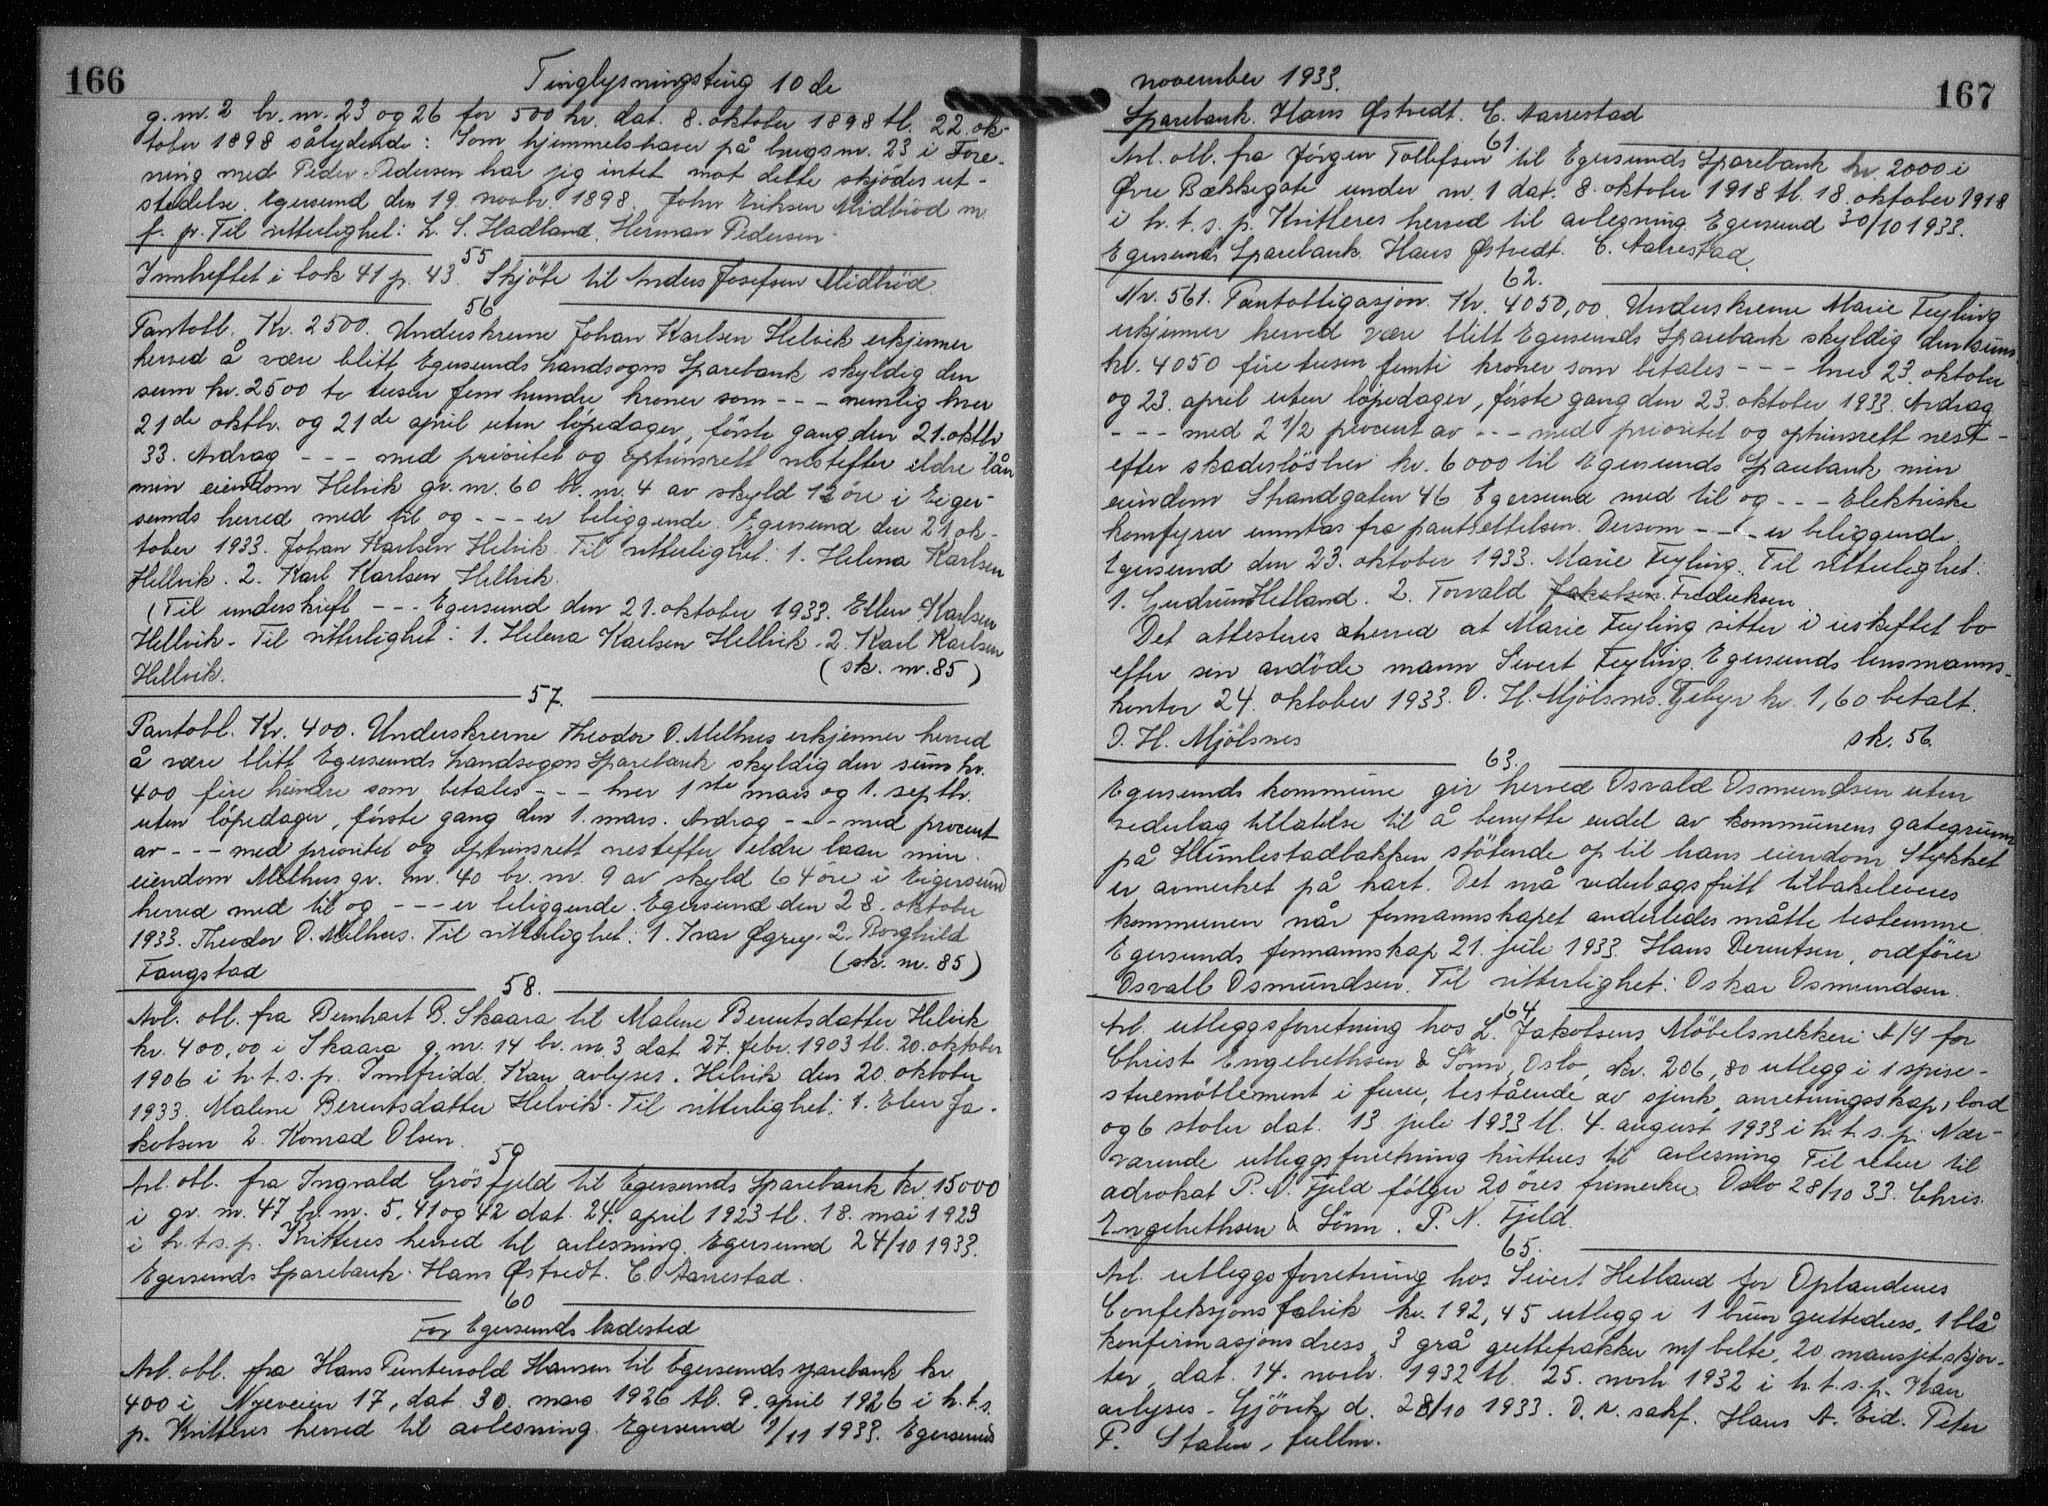 166
Tinglysningsting 10 de
g. nr. 2 br. nr. 23 og 26 for 500 kr. dat. 8. oktober 1898 tl. 22. ok-
tober 1898 sålydende: Som hjemmelshaver på brugsnr. 23 i Fore-
ning med Peder Pedersen har jeg intet mot dette skjødes ut-
stedelse. Egersund den 19. novbr. 1898. John Eriksen Midbrød m.
f. p. Til vitterlighet: L. S. Hadland. Herman Pedersen
55
Innheftet i bok 41 p. 43. Skjöte til Anders Josefsen Midbröd.
56
Pantobl. Kr. 2500. Underskrevne Johan Karlsen Helvik erkjenner
herved å være blitt Egersunds Landsogns Sparebank skyldig den
sum kr. 2500 to tusen fem hundre kroner som - - - nemlig hver
21de oktbr. og 21de april uten löpedager, förste gang den 21. oktbr
33. Avdrag - - - med prioritet og optrinsrett nestefter eldre lån
min eiendom Helvik gr. nr. 60 br. nr. 4 av skyld 12 öre i Eiger-
sunds herred med til og - - - er beliggende. Egersund den 21 ok-
tober 1933. Johan Karlsen Helvik. Til vitterlighet: 1. Helena Karlsen
Hellvik. 2. Karl Karlsen Hellvik.
(Til underskrift - - - Egersund den 21. oktober 1933. Ellen Karlsen
Hellvik. Til vitterlighet: 1. Helena Karlsen Hellvik. 2. Karl Karlsen
Hellvik. (sk. nr. 85)
57.
Pantobl. Kr. 400. Underskrevne Theodor O. Melhus erkjenner herved
å være blitt Egersunds Landsogns Sparebank skyldig den sum kr.
400 fire hundre som betales - - - hver 1ste mars og 1. septbr.
uten löpedager, förste gang den 1. mars. Avdrag - - - med procent
av - - - med prioritet og optrinsrett nestefter eldre laan min
eiendom Melhus gr. nr. 40 br. nr. 9 av skyld 64 öre i Eigersund
herred med til og - - - er beliggende. Egersund den 28. oktober
1933. Theodor O. Melhus. Til vitterlighet: 1. Ivar Øgrey. 2. Borghild
Taugstad (sk. nr. 85)
58.
Avl. obl. fra Bernhart B. Skaara til Malene Berentsdatter Helvik
kr. 400,00 i Skaara g. nr. 14 br. nr. 3 dat. 27. febr. 1903 tl. 20. oktober
1906 i h. t. s. p. Innfridd. Kan avlyses. Helvik den 20. oktober
1933. Malene Berentsdatter Helvik. Til vitterlighet: 1. Elen Ja-
kobsen 2. Konrad Olsen.
59
Avl. obl. fra Ingvald Grösfjeld til Egersunds Sparebank kr. 15000
i gr. nr. 47 br. nr. 5, 41 og 42 dat. 24. april 1923 tl. 18. mai 1923
i h. t. s. p. Kvitteres herved til avlesning. Egersund 24/10 1933.
Egersunds Sparebank. Hans Østvedt. C. Aarrestad.
60
For Egersunds ladested
Avl. obl. fra Hans Puntervold Hansen til Egersunds sparebank kr.
400 i Nyeveien 17, dat. 30. mars 1926 tl. 9. april 1926 i h. t. s.
p. Kvitteres herved til avlesning. Egersund 1/11 1933. Egersunds
167
november 1933.
Sparebank. Hans Østvedt. C. Aarrestad
61.
Avl. obl. fra Jörgen Tollefsen til Egersunds Sparebank kr. 2000 i
Øvre Bækkegate under nr. 1 dat. 8. oktober 1918 tl. 18. oktober 1918
i h. t. s. p. Kvitteres herved til avlesning. Egersund 30/10 1933.
Egersunds Sparebank. Hans Østvedt. C. Aarrestad.
62.
Nr. 561. Pantobligasjon. Kr. 4050,00. Underskrevne Marie Feyling
erkjenner herved være blitt Egersunds Sparebank skyldig den sum
kr. 4050 fire tusen femti kroner som betales - - - hver 23. oktober
og 23. april uten löpedager, förste gang den 23. oktober 1933. Avdrag
- - - med 2 1/2 procent av - - - med prioritet og optrinsrett nest-
efter skadeslösbrev kr. 6000 til Egersunds Sparebank min
eiendom Strandgaten 46 Egersund med til og - - - Elektriske
komfyrer unntas fra pantsettelsen. Dersom - - - er beliggende.
Egersund den 23. oktober 1933. Marie Feyling. Til vitterlighet:
1. Gudrun Hetland. 2. Torvald Jakobsen Fredriksen.
Det attesteres herved at Marie Feyling sitter i uskiftet bo
efter sin avdöde mann Sivert Feyling. Egersunds lensmanns-
kontor 24. oktober 1933. O. H. Mjölsnes. Gebyr kr. 1,60 betalt.
O. H. Mjölsnes sk. 56.
63.
Egersunds kommune gir herved Osvald Osmundsen uten
vederlag tillatelse til å benytte endel av kommunens gategrunn
på Humlestadbakken stötende op til hans eiendom. Stykket
er avmerket på kart. Det må vederlagsfritt tilbakeleveres
kommunen når formannskapet anderledes måtte bestemme.
Egersunds formannskap 21. juli 1933. Hans Berentsen, ordförer
Osvall Osmundsen. Til vitterlighet: Oskar Osmundsen.
64.
Avl. utleggsforretning hos L. Jakobsens Möbelsnekkeri A/S for
Christ Engebrethsen & Sönn, Oslo, kr. 206,80 utlegg i 1 spise-
stuemöblement i furu, bestående av sjenk, anretningsskap, bord
og 6 stoler dat. 13 juli 1933 tl. 4. august 1933 i h. t. s. p. Nær-
værende utleggsforretning kvitteres til avlesning. Til retur til
advokat P. N. Fjeld fölger 20 öres frimerke. Oslo 28/10 33. Chris.
Engebrethsen & Sönn. P. N. Fjeld.
65.
Avl. utleggsforretning hos Sivert Hetland for Oplandenes
Confeksjonsfabrik kr. 192,45 utlegg i 1 brun guttedress, 1 blå
konfirmasjonsdress, 3 grå guttefrakker m/ belte, 20 mansjetskjor-
ter, dat. 14. novbr. 1932 tl. 25. novbr 1932 i h. t. s. p. Kan
avlyses. Gjövik d. 28/10 1933. O. r. sakf. Hans A. Eid. Peter
P. Stalen, fullm.